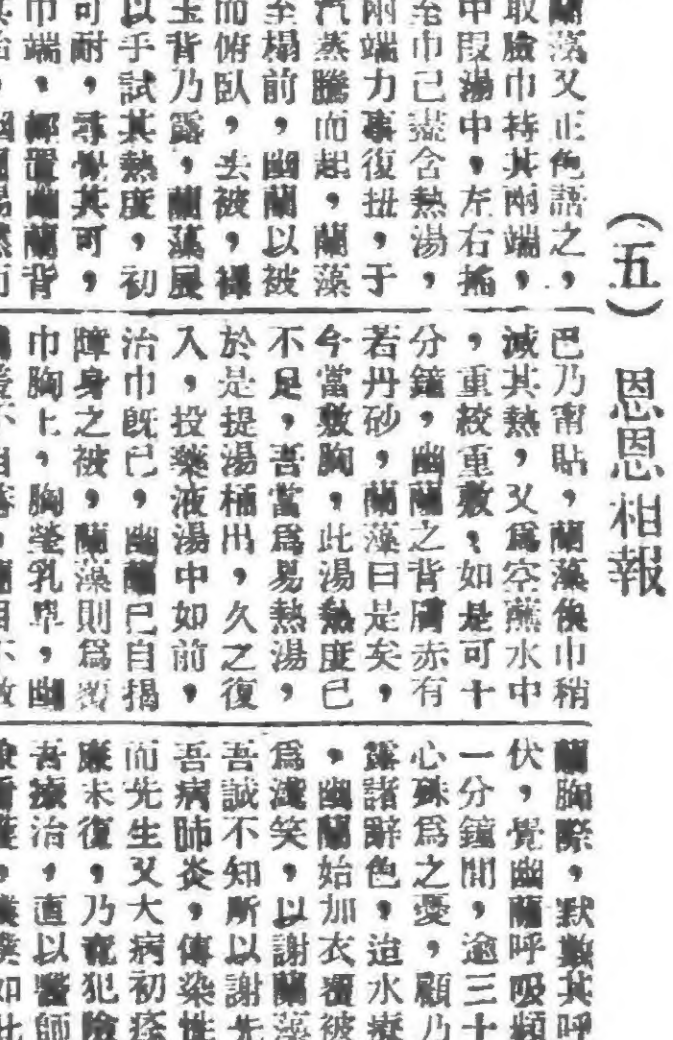 （五）恩恩相報
蘭藻又正色語之，
取臉巾持其兩端，
中叚湯中，左右搖，
至巾已盡含熱湯，
兩端力事復扭，于
汽蒸騰而起，蘭藻
至榻前，幽蘭以被
而俯臥，去被，裸
玉背乃露，蘭藻展
以手試其熱度，初
可耐，尋其可，
巾端，置幽蘭背
已乃甯貼，蘭藻俟巾稍
減其熱，又爲空蘸水中
，重絞重敷，如是可十
分鐘，幽蘭之背膚赤有
若丹砂，蘭藻曰是矣，
今當敷胸，此湯熱度已
不足，吾當爲易熱湯，
於是提湯桶出，久之復
入，投藥液湯中如前，
治巾既已，幽蘭已自揭
障身之被，蘭藻則爲覆
巾胸上，胸瑩乳，幽
蘭胸際，默數其呼
伏，覺幽蘭呼吸頻
一分鐘間，逾三十
心殊爲之憂，顧乃
露諸辭色，迨水療
，幽蘭始加衣覆被
爲淺笑，以謝蘭藻
吾誠不知所以謝先
吾病肺炎，傳染性
而先生又大病初痊
康未復，乃竟犯險
吾療治，直以醫師